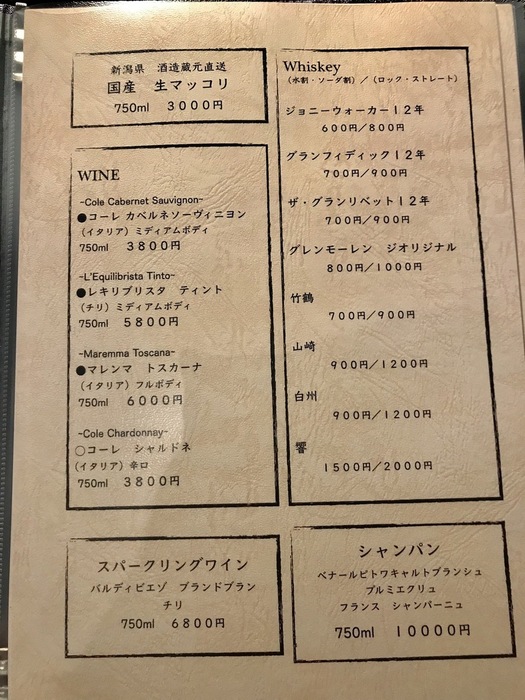 新潟県　酒造蔵元直送
国産　生マッコリ
750ml　3000円
WINE
~Cole Cabernet Sauvignon~
●コーレ カベルネソーヴィニヨン
（イタリア）ミディアムボディ
750ml　3800円
~L'Equilibrista Tinto~
●レキリブリスタ　ティント
（チリ）ミディアムボディ
750ml　5800円
~Maremma Toscana~
●マレンマ　トスカーナ
（イタリア）フルボディ
750ml　6000円
~Cole Chardonnay~
○コーレ　シャルドネ
（イタリア）辛口
750ml　3800円
スパークリングワイン
バルディビエゾ　ブランドブラン
チリ
750ml　6800円
Whiskey
（水割・ソーダ割）／（ロック・ストレート）
ジョニーウォーカー１２年
600円／800円
グランフィディック１２年
700円／900円
ザ・グランリベット１２年
700円／900円
グレンモーレン　ジオリジナル
800円／1000円
竹鶴
700円／900円
山崎
900円／1200円
白州
900円／1200円
響
1500円／2000円
シャンパン
ベナールピトワキャルトブランシュ
プルミエクリュ
フランス　シャンパーニュ
750ml　10000円